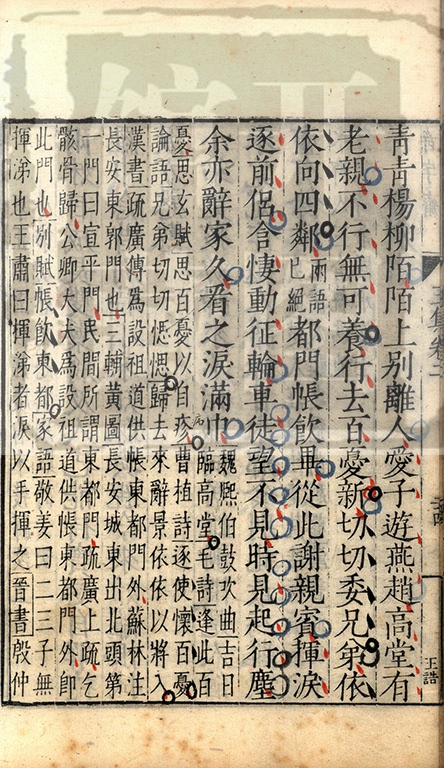 青青楊柳陌陌上別離人愛子遊燕趙高堂有
老親不行無可養行去百憂新切切委兄弟依
依向四鄰兩語已絕都門帳飲畢從此謝親賓揮淚
逐前侶含悽動征輪車徒望不見時見起行塵
余亦辭家久看之淚滿巾魏熙伯鼓吹曲吉日
臨高堂毛詩逢此百
憂思玄賦思百憂以自疹曹植詩遂使懷百憂
論語兄弟切切偲偲歸去來辭景依依以將入
漢書疏廣傳為設祖道供帳東都門外蘇林注
長安東郭門也三輔黃圖長安城東出北頭第
一門曰宣平門民間所謂東都門疏廣上疏乞
骸骨歸公卿大夫為設祖道供帳東都門外即
此門也別賦帳飲東都家語敬姜曰二三子無
揮涕也王肅曰揮涕者淚以手揮之晉書殷仲
王誥